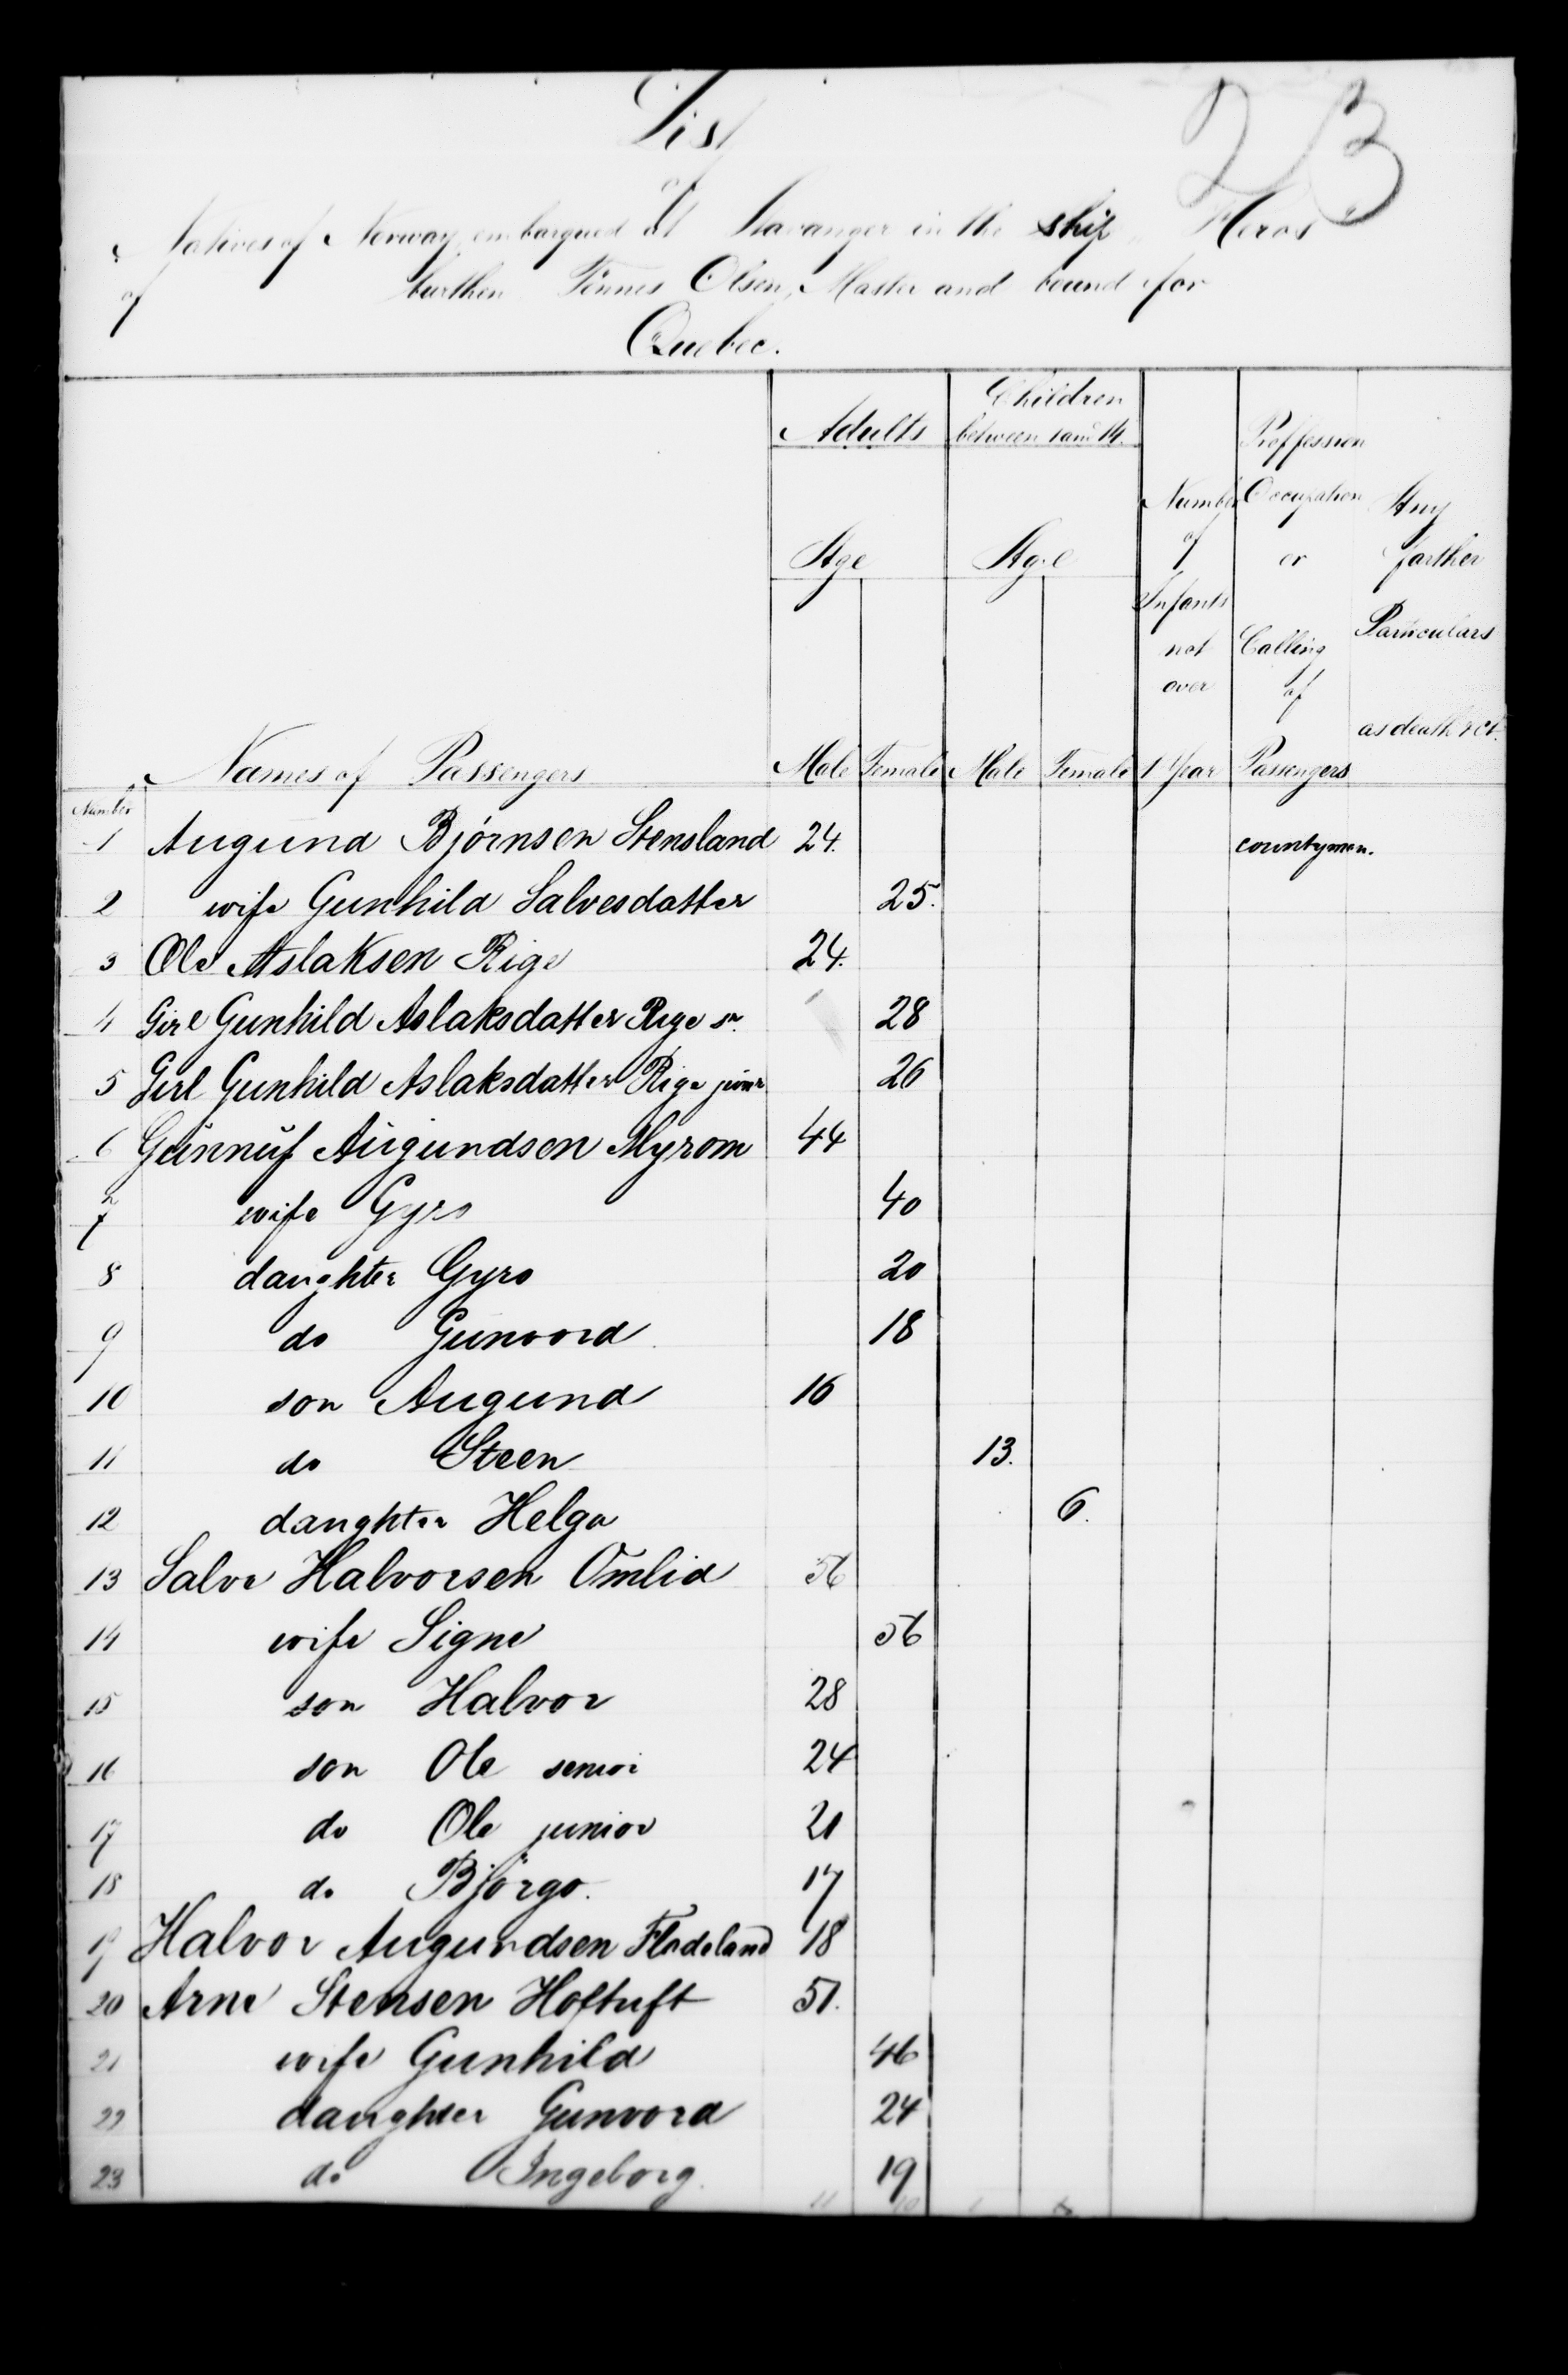 23
List
of
Natives of Norway, embarqued at Stavanger in the ship Heros
of burthen Tönnes Olsen, Master and bound for
Quebec.
Adults
Children between 1 and 14.
Age
Age
Number of Infants not over 1 Year
Proffession Occupation or Calling of Passengers
Any farther Particulars as death & ct.
Number Names of Passengers Male Female Male Female
1 Augund Bjórnsen Stensland 24. countyman.
2 wife Gunhild Salvesdatter 25.
3 Ole Aslaksen Rige 24.
4 Girl Gunhild Aslaksdatter Rige sr. 28
5 Girl Gunhild Aslaksdatter Rige junr 26
6 Gunnuf Augundsen Myrom 44
7 wife Gyro 40
8 daughter Gyro 20
9 do Gunvord 18
10 son Augund 16
11 do Steen 13.
12 daughter Helga 6.
13 Salve Halvorsen Omlid 56
14 wife Signe 56
15 son Halvor 28
16 son Ole senior 24
17 do Ole junior 21
18 do Bjórgo. 17
19 Halvor Augundsen Fladeland 18
20 Arne Stensen Hoftuft 51.
21 wife Gunhild 46
22 daughter Gunvord 24
23 do Ingeborg. 19